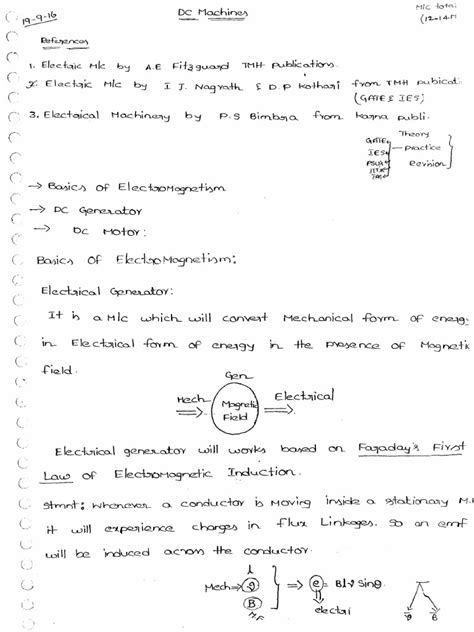 19-9-16
DC Machines
M/c total
(12-14M
References
1. Electric M/c by A.E Fitzguard TMH publications.
2. Electric M/c by I J. Nagrath & D.P Kothari from TMH pubicati
(GATE & IES)
3. Electrical Machinery by P.S Bimbra from Karna publi.
Theory
GATE
IES practice
Revision
→ Basics of Electromagnetism
→ DC Generator
→ DC Motor:
Basics of Electromagnetism:
Electrical Generator:
It is a M/c which will convert Mechanical form of energ
in Electrical form of energy in the presence of Magnetic
field.
Gen
Mech ⇒ Magnetic Field ⇒ Electrical
Electrical generator will works based on Faraday's First
Law of Electromagnetic Induction.
Stmnt: Whenever a conductor is Moving inside a stationary M.F
it will experience changes in flux Linkages. So an emf
will be induced across the conductor.
l
Mech → v ⇒ e = Blv Sinθ
B
M.F
electri
v B